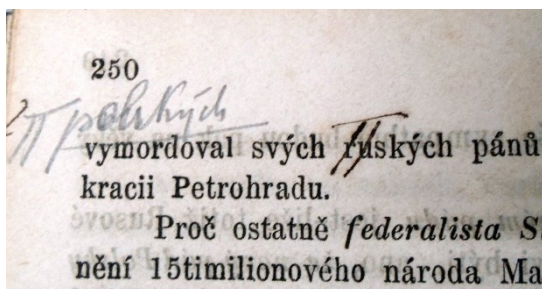 250
polských
vymordoval svých ruských pánů
kracii Petrohradu.
Proč ostatně federalista S
nění 15timilionového národa Ma